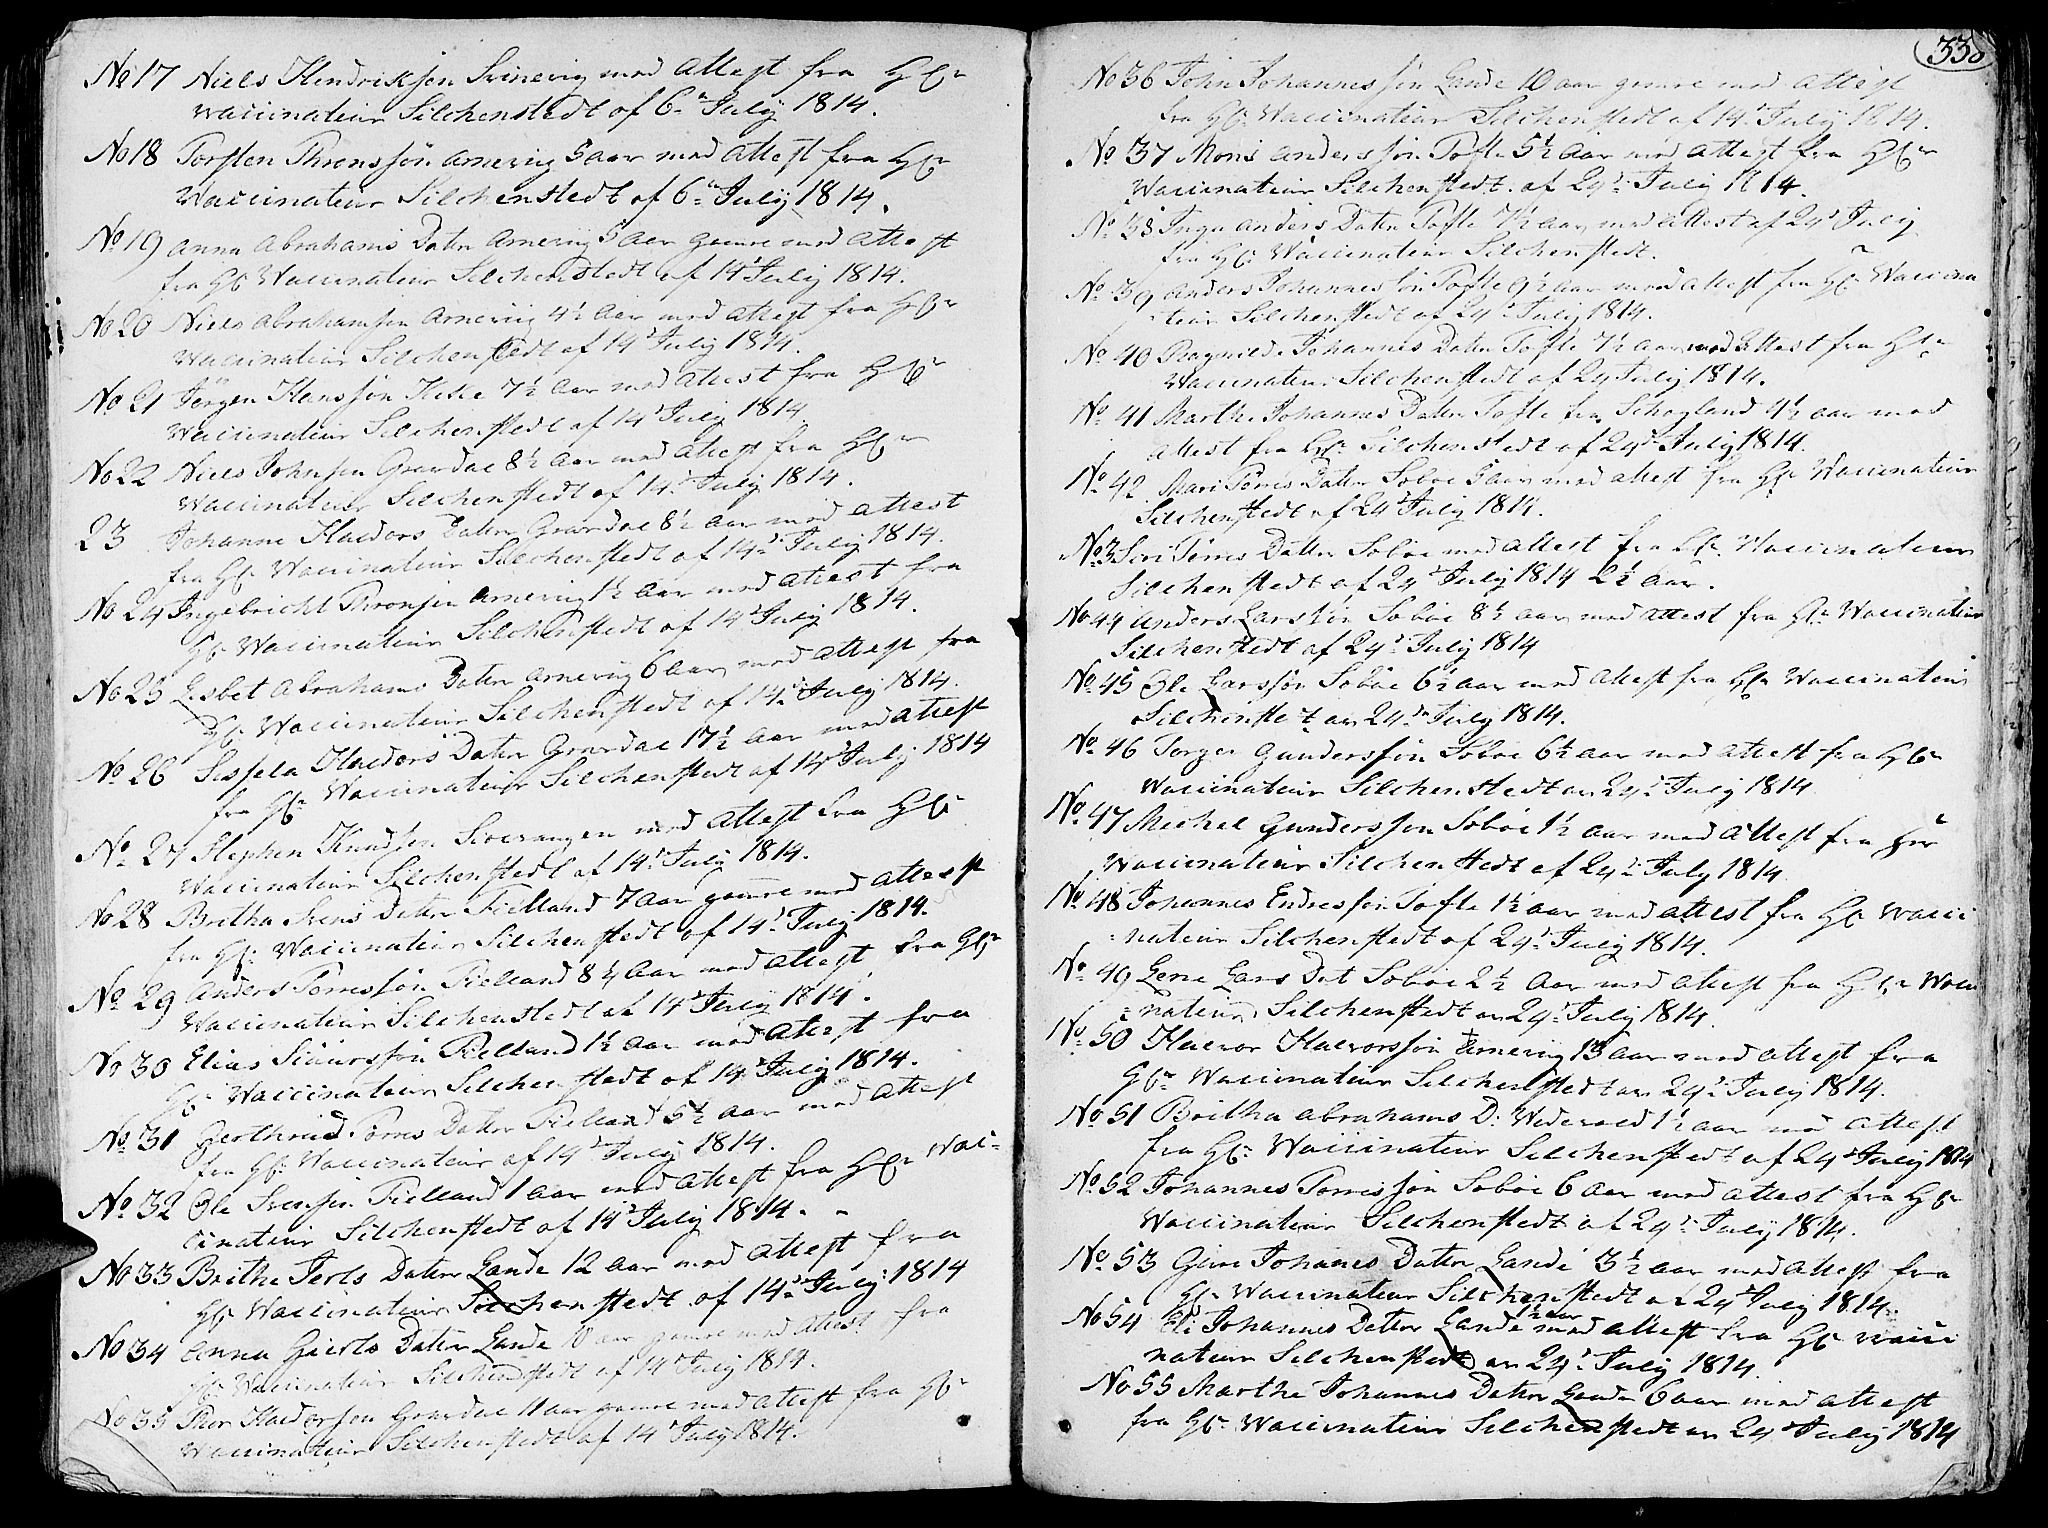 No 17 Niels Hendriksøn Svinevig med Attest fra Hr
Waccinateur Silchenstedt af 6te July 1814.
No 18 Torsten Thronssøn Arnevig 5 aar med Attest fra Hr
Waccinateur Silchenstedt af 6te July 1814.
No 19 Anna Abrahams Datter Arnevig 5 Aar gamle med Attest
fra Hr Waccinateur Silchenstedt af 14d July 1814.
No 20 Niels Abrahamsen Arnevig 4½ Aar med Attest fra Hr
Waccinateur Silchenstedt af 14d July 1814.
No 21 Jörgen Hanssøn 7½ Aar med Attest fra Hr
Waccinateur Silchenstedt af 14d July 1814
No 22 Niels Johnsen Graadal 8½ Aar med Attest fra Hr
Waccinateur Silchenstedt af 14d July 1814.
23 Johanne Haldors Datter Graadal 8½ Aar med Attest
fra Hr Waccinateur Silchenstedt af 14d July 1814.
No 24 Ingebricht Thronsen Arnevig 1½ Aar med Attest fra
Hr Waccinateur Silchenstedt af 14d July 1814.
No 25 Lisbet Abrahams Datter Arnevig 6 Aar med Attest fra
Hr Waccinateur Silchenstedt af 14d July 1814.
No 26 Sessela Haldors Datter Graadal 17½ Aar med Attest
fra Hr Waccinateur Silchenstedt af 14d July 1814
No 27 Stephen Knudsen med Attest fra Hr
Waccinateur Silchenstedt af 14d July 1814.
No 28 Britha Svens Datter Fielland 7 aar gamle med Attest
fra Hr Waccinateur Silchenstedt af 14d July 1814.
No 29 Anders Torressøn Fielland 8½ Aar med Attest fra Hr
Waccinateur Silchenstedt af 14d July 1814.
No 30 Elias Fielland 1½ Aar med Attest fra
Hr Waccinateur Silchenstedt af 14d July 1814.
No 31 Gerthrud Torres Datter Fielland 5½ Aar med Attest
fra Hr Waccinateur af 14d July 1814.
No 32 Ole Svensøn Fielland 1 Aar med Attest fra Hr Wac-
cinateur Silchenstedt af 14d July 1814.
No 33 Brithe Datter Lande 12 Aar med Attest fra
Hr Waccinateur Silchenstedt af 14d July 1814
No 34 Anna Datter Lande 10 aar gamle med Attest fra
Hr Waccinateur Silchenstedt af 14d July 1814.
No 35 Thor Haldorsøn Graadal 11 aar gamle med Attest fra Hr
Waccinateur Silchenstedt af 14d July 1814.
330
No 36 John Johannessøn Lande 10 aar gamle med Attest
fra Hr Waccinateur Silchenstedt af 14d July 1814.
No 37 Mons Anderssøn Tofte 5½ Aar med Attest fra Hr
Waccinateur Silchenstedt af 24d July 1814.
No 38 Inga Anders Datter Tofte 7½ Aar med Attest af 24d July
fra Hr Waccinateur Silchenstedt.
No 39 Anders Johannessøn Tofte 9½ Aar med Attest fra Hr Waccina
teur Silchenstedt af 24d July 1814.
No 40 Ragnild Johannes Datter Tofte 7½ Aar med Attest fra Hr
Waccinateur Silchenstedt af 24 July 1814.
No 41 Marthe Johannes Datter Tofte fra 4½ Aar med
Attest fra Hr Silchenstedt af 24d July 1814.
No 42 Mari Torres Datter Soböe 5 aar med Attest fra Hr Waccinateur
Silchenstedt af 24d July 1814.
No 3 Siri Torres Datter Soböe med Attest fra Hr Waccinateur
Silchenstedt af 24d July 1814 2½ Aar.
No 44 Anders Larssøn Soböe 8½ Aar med Attest fra Hr Waccinateur
Silchenstedt af 24d July 1814
No 45 Ole Larssøn Soböe 6½ Aar med Attest fra Hr Waccinateur
Silchenstedt av 24de July 1814.
No 46 Torger Gunderssøn Soböe 6½ Aar med Attest fra Hr
Waccinateur Silchenstedt av 24d July 1814
No 47 Michel Gunderssøn Soböe 1½ Aar med Attest fra Hr
Waccinateur Silchenstedt af 24d July 1814
No 48 Johannes Endressøn Tofte 1½ Aar med Attest fra Hr Wacci
nateur Silchenstedt af 24d July 1814.
No 49 Lene Lars Dat Soböe 2½ Aar med Attest fra Hr Wacci
nateur Silchenstedt av 24d July 1814.
No 50 Halvor Halvorssøn Arnevig 13 Aar med Attest fra
Hr Waccinateur Silchenstedt av 24d July 1814.
No 51 Britha Abrahams D: 1½ Aar med Attest
fra Hr Waccinateur Silchenstedt af 24d July 1814
No 52 Johannes Torressøn Soböe 6 Aar med Attest fra Hr
Waccinateur Silchenstedt af 24d July 1814.
No 53 Johannes Datter Lande 3½ Aar med Attest fra
Hr Waccinateur Silchenstedt av 24d July 1814.
No 54 Eli Johannes Datter Lande 1½ aar med Attest fra Hr Wacci
nateur Silchenstedt av 24d July 1814.
No 55 Marthe Johannes Datter Lande 6 aar med Attest
fra Hr Waccinateur Silchenstedt av 24d July 1814